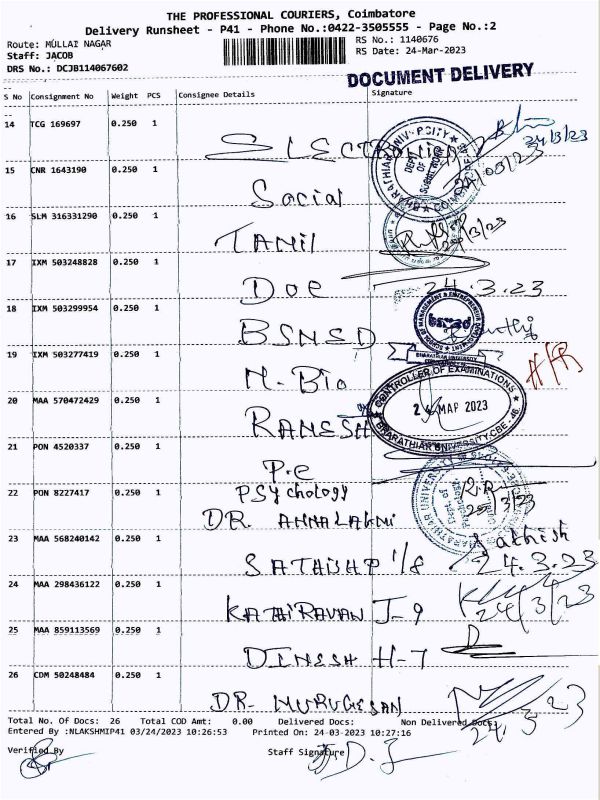 THE PROFESSIONAL COURIERS, Coimbatore
Delivery Runsheet - P41 - Phone No.:0422-3505555 - Page No.:2
Route: MULLAI NAGAR RS No.: 1140676
Staff: JACOB RS Date: 24-Mar-2023
DRS No.: DCJB114067602
DOCUMENT DELIVERY
S No Consignment No Weight PCS Consignee Details Signature
14 TCG 169697 0.250 1
24/3/23
15 CNR 1643190 0.250 1
Social
16 SLM 316331290 0.250 1
TAMIL
17 IXM 503248828 0.250 1
DOE 24.3.23
18 IXM 503299954 0.250 1
BSMED bsmed
19 IXM 503277419 0.250 1
M.Bio
CONTROLLER OF EXAMINATIONS
20 MAA 570472429 0.250 1
RAMESH 24 MAR 2023
BHARATHIAR UNIVERSITY, CBE-46
21 PON 4520337 0.250 1
P.e
22 PON 8227417 0.250 1
PSYchology
DR.
23 MAA 568240142 0.250 1
Sathish
SATHISH P 1/8 24.3.23
24 MAA 298436122 0.250 1
KATHIRAVAN J-9 24/3/23
25 MAA 859113569 0.250 1
DINESH H-7
26 CDM 50248484 0.250 1
DR. MURUGESAN 24.3.23
Total No. Of Docs: 26 Total COD Amt: 0.00 Delivered Docs: Non Delivered Docs:
Entered By :NLAKSHMIP41 03/24/2023 10:26:53 Printed On: 24-03-2023 10:27:16
Verified By Staff Signature